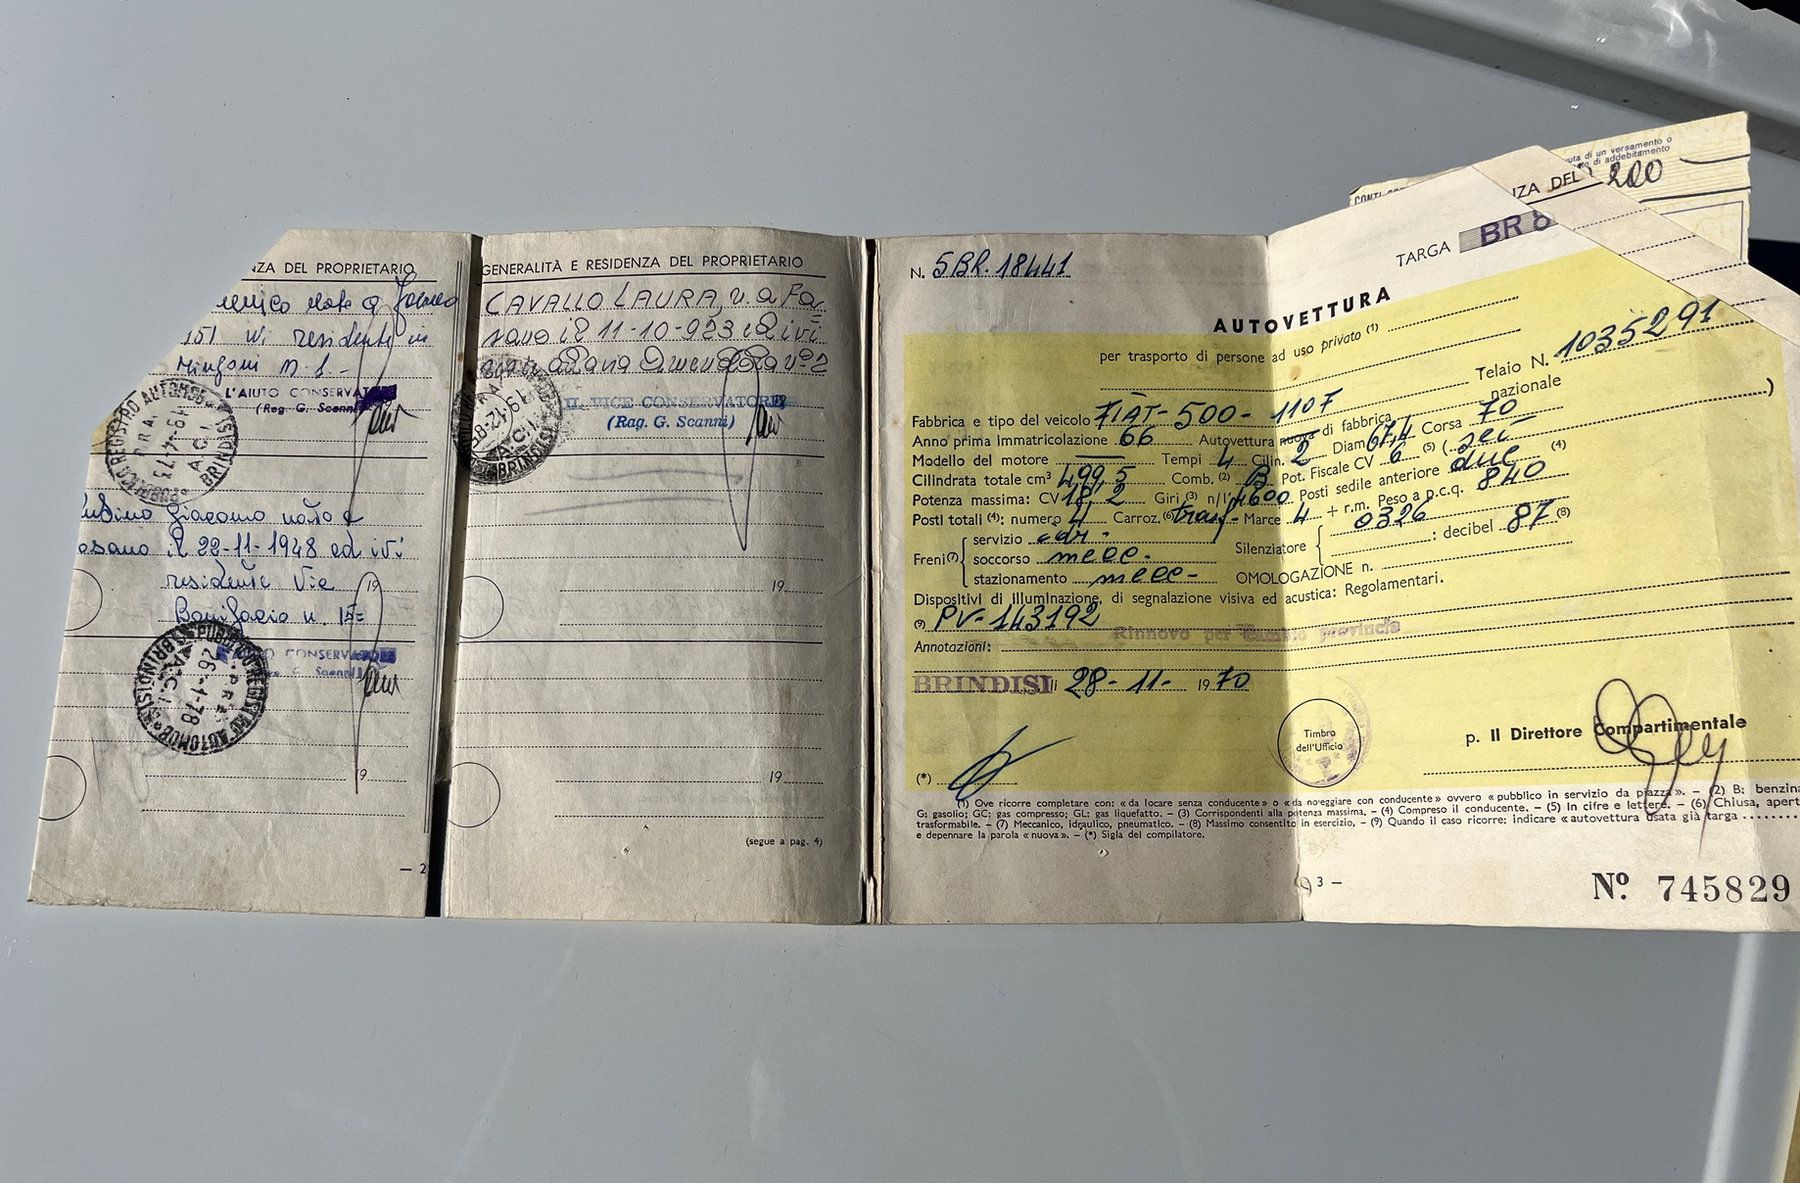 NZA DEL PROPRIETARIO
residente in
L'AIUTO CONSERVATORE
(Reg. G. Scanni)
PUBBLICO REGISTRO AUTOMOB
P.R.A.
19-4-73
A.C.I.
BRINDISI
Giacomo nato a
il 22-11-1948 ed ivi
residente Via
Bonifacio n.
19
CONSERVATORE
G. Scanni)
PUBBLICO REGISTRO AUTOMOB
P.R.A.
26-1-78
A.C.I.
BRINDISI
19
— 2
GENERALITÀ E RESIDENZA DEL PROPRIETARIO
CAVALLO LAURA, n. a Fa=
sano il 11-10-923 ed ivi
IL VICE CONSERVATORE
(Rag. G. Scanni)
A.C.I.
BRINDISI
19
19
(segue a pag. 4)
CONTI
uta di un versamento o
di addebitamento
NZA DEL
200
N. 5BR.18441
TARGA BR 8
AUTOVETTURA
per trasporto di persone ad uso privato (1)
Telaio N. 1035291
Fabbrica e tipo del veicolo FIAT-500- 110F nazionale
Anno prima immatricolazione 66 Autovettura nuova di fabbrica )
Modello del motore — Tempi 4 Cilin. 2 Diam 67,4 Corsa 70
Cilindrata totale cm³ 499,5 Comb. (2) B Pot. Fiscale CV 6 (5) ( sei (4)
Potenza massima: CV 18,2 Giri (3) n/1' 4600 Posti sedile anteriore due
Posti totali (4): numero 4 Carroz. (6) trasf- Marce 4 + r.m. Peso a p.c.q. 840
Freni (7) servizio idr. Silenziatore 0326 : decibel 87 (8)
soccorso mecc.
stazionamento mecc- OMOLOGAZIONE n.
Dispositivi di illuminazione, di segnalazione visiva ed acustica: Regolamentari.
(9) PV-143192
Rinnovo per cambio provincia
Annotazioni:
BRINDISI lì 28-11-1970
Timbro
dell'Ufficio
p. Il Direttore Compartimentale
(*)
(1) Ove ricorre completare con: «da locare senza conducente» o «da noleggiare con conducente» ovvero «pubblico in servizio da piazza». - (2) B: benzina
G: gasolio; GC: gas compresso; GL: gas liquefatto. - (3) Corrispondenti alla potenza massima. - (4) Compreso il conducente. - (5) In cifre e lettere. - (6) Chiusa, apert
trasformabile. - (7) Meccanico, idraulico, pneumatico. - (8) Massimo consentito in esercizio. - (9) Quando il caso ricorre: indicare «autovettura usata già targa
e depennare la parola «nuova». - (*) Sigla del compilatore.
3 —
Nº. 745829